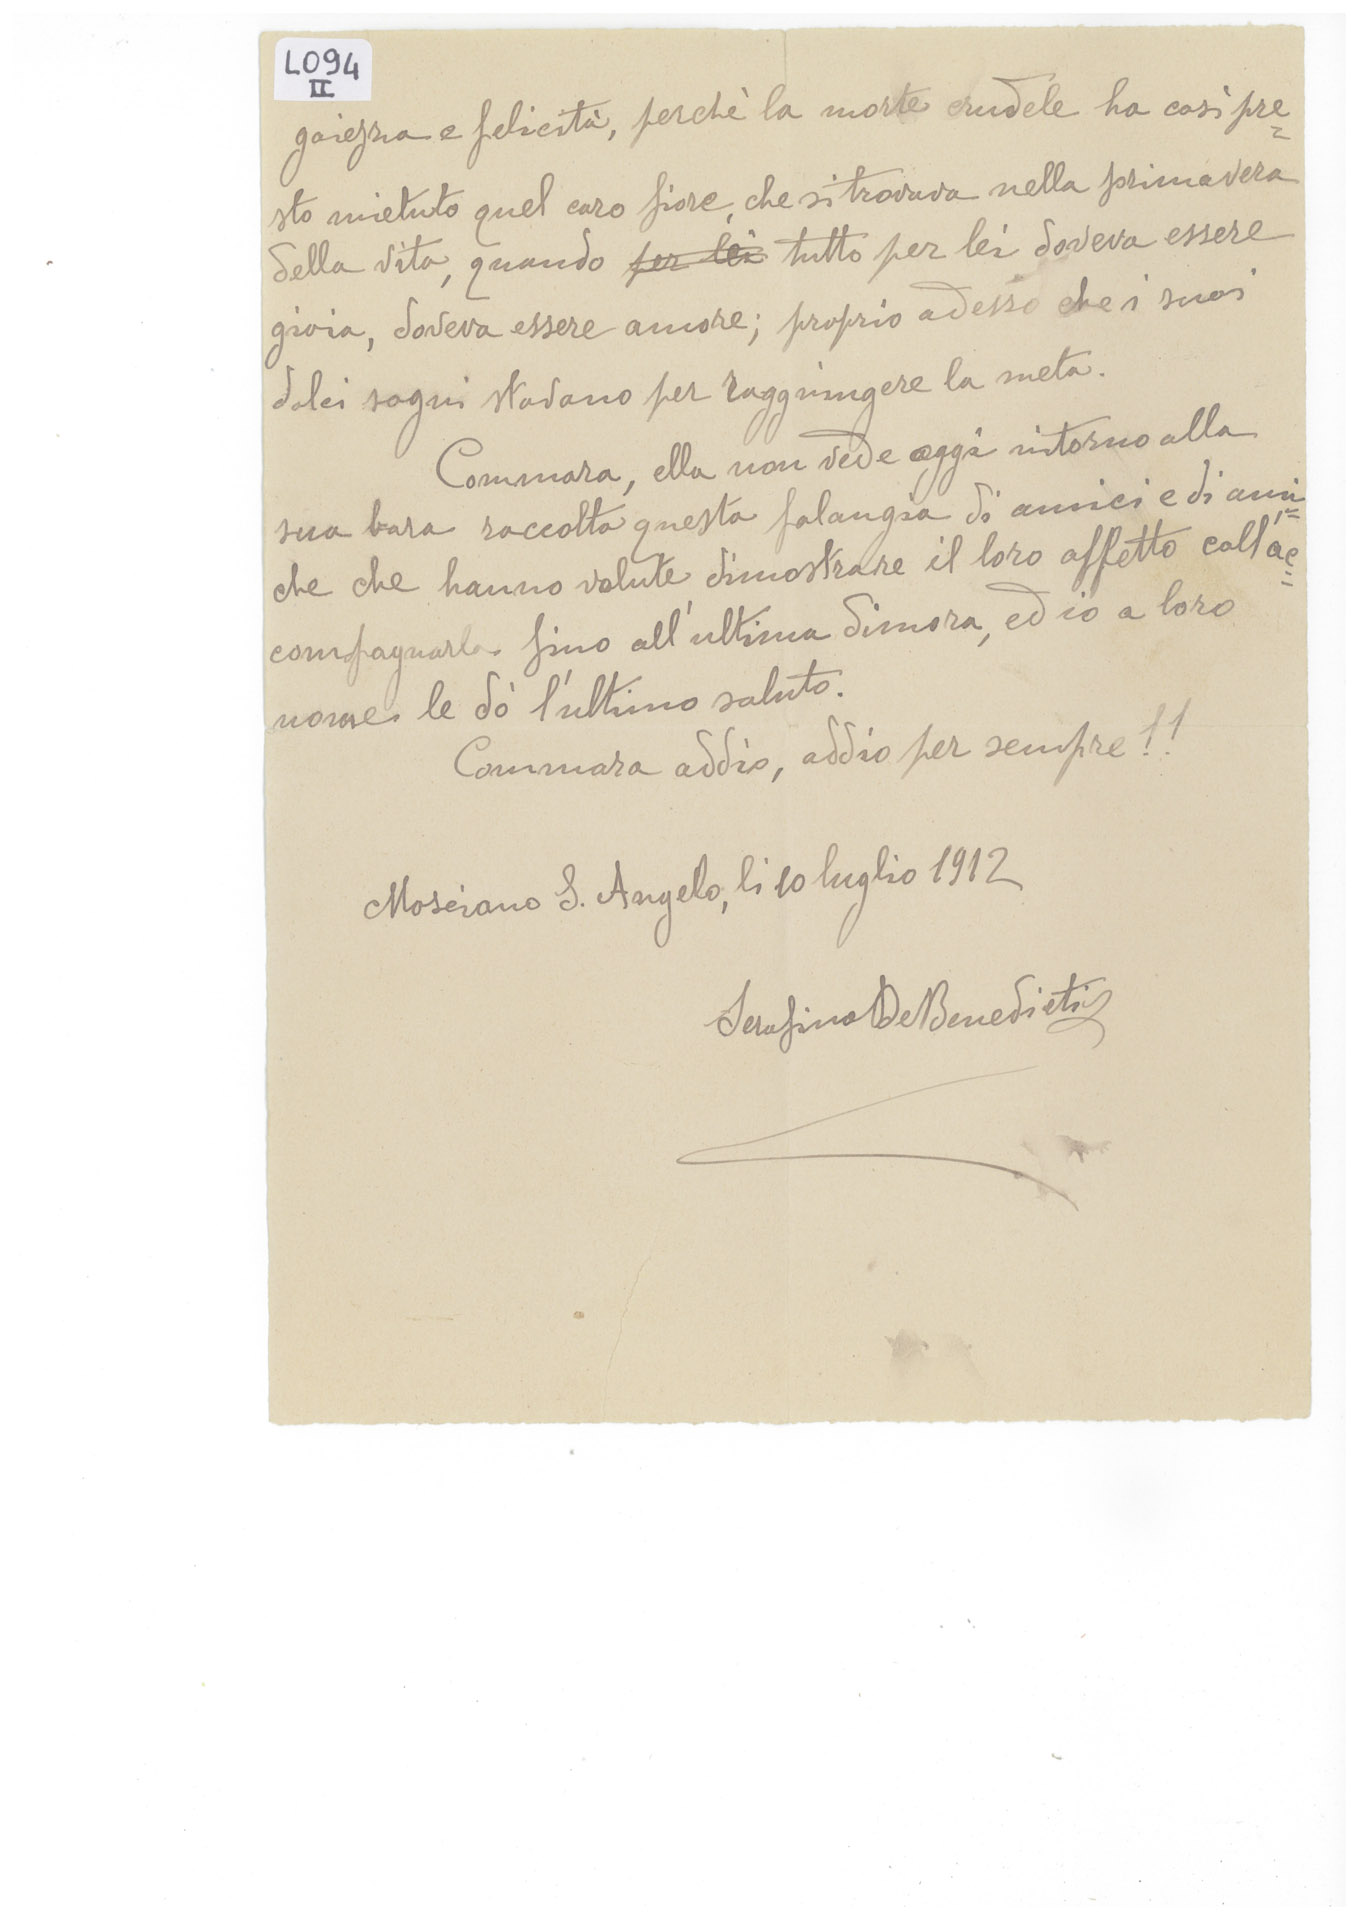 L094
II
gaiezza e felicità, perchè la morte crudele ha così pre=
sto mietuto quel caro fiore, che si trovava nella primavera
della vita, quando per lei tutto per lei doveva essere
gioia, doveva essere amore; proprio adesso che i suoi
dolci sogni stavano per raggiungere la meta.
Commara, ella non vede oggi intorno alla
sua bara raccolta questa falangia di amici e di ami=
che che hanno volute dimostrare il loro affetto coll'ac=
compagnarla fino all'ultima dimora, ed io a loro
nome le dò l'ultimo saluto.
Commara addio, addio per sempre!!
Mosciano S. Angelo, li 10 luglio 1912
Serafino De Benedictis